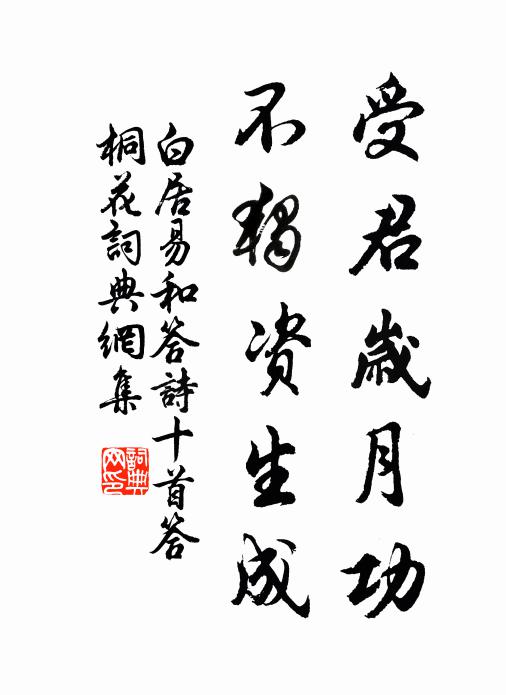 受君歲月功
不獨資生成
白居易和答詩十首答
桐花詞典網集
詞典网印